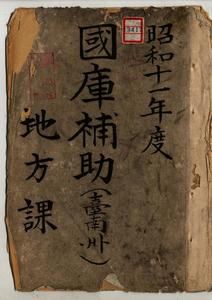 昭和十一年度
國庫補助(臺南州)
地方課